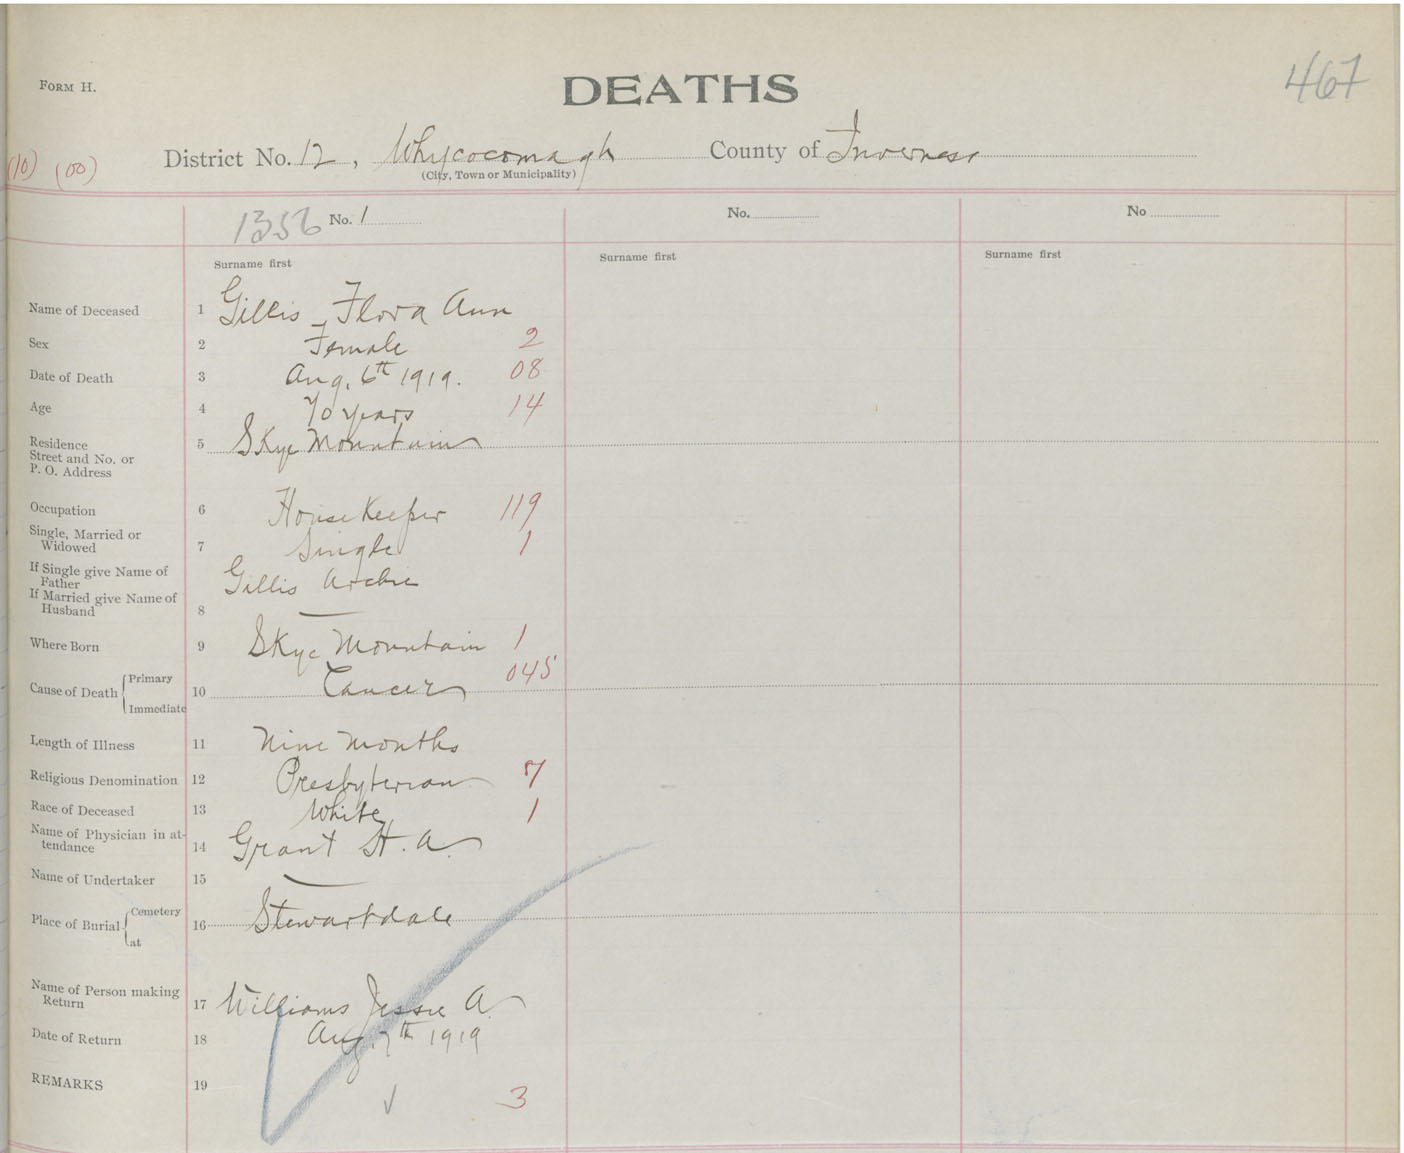 467
FORM H.
DEATHS
(10) (00) District No. 12, Whycocomagh County of Inverness
(City, Town or Municipality)
1356 No. 1 No. No
Surname first Surname first Surname first
Name of Deceased 1 Gillis Flora Ann
Sex 2 Female 2
Date of Death 3 Aug. 6th 1919. 08
Age 4 70 years 14
Residence
Street and No. or
P. O. Address
5 Skye Mountain
Occupation 6 HouseKeeper 119
Single, Married or
Widowed 7 Single 1
If Single give Name of
Father
Gillis Archie
If Married give Name of
Husband 8 —
Where Born 9 Skye Mountain 1
Cause of Death { Primary
Immediate
10 Cancer 045
Length of Illness 11 Nine Months
Religious Denomination 12 Presbyterian 7
Race of Deceased 13 White 1
Name of Physician in at-
tendance 14 Grant H. A.
Name of Undertaker 15 —
Place of Burial { Cemetery
at
16 Stewartdale
Name of Person making
Return 17 Williams Jessie A.
Date of Return 18 Aug. 7th 1919
REMARKS 19
3